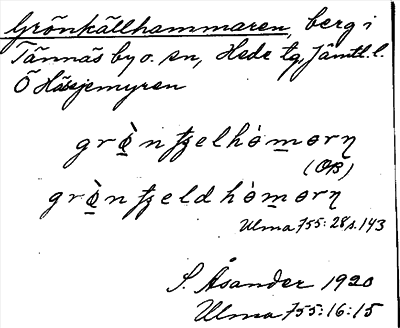 Grönkällhammaren, berg i
Tännäs by o. sn, Hede tg, Jämtl. l.
Ö Hässjemyren
grö̀nʈʂelhòmorn̥
(OB)
grö̀nʈʂeldhòmorn̥
Ulma 755:28 s. 143
S. Åsander 1920
Ulma 755:16:15